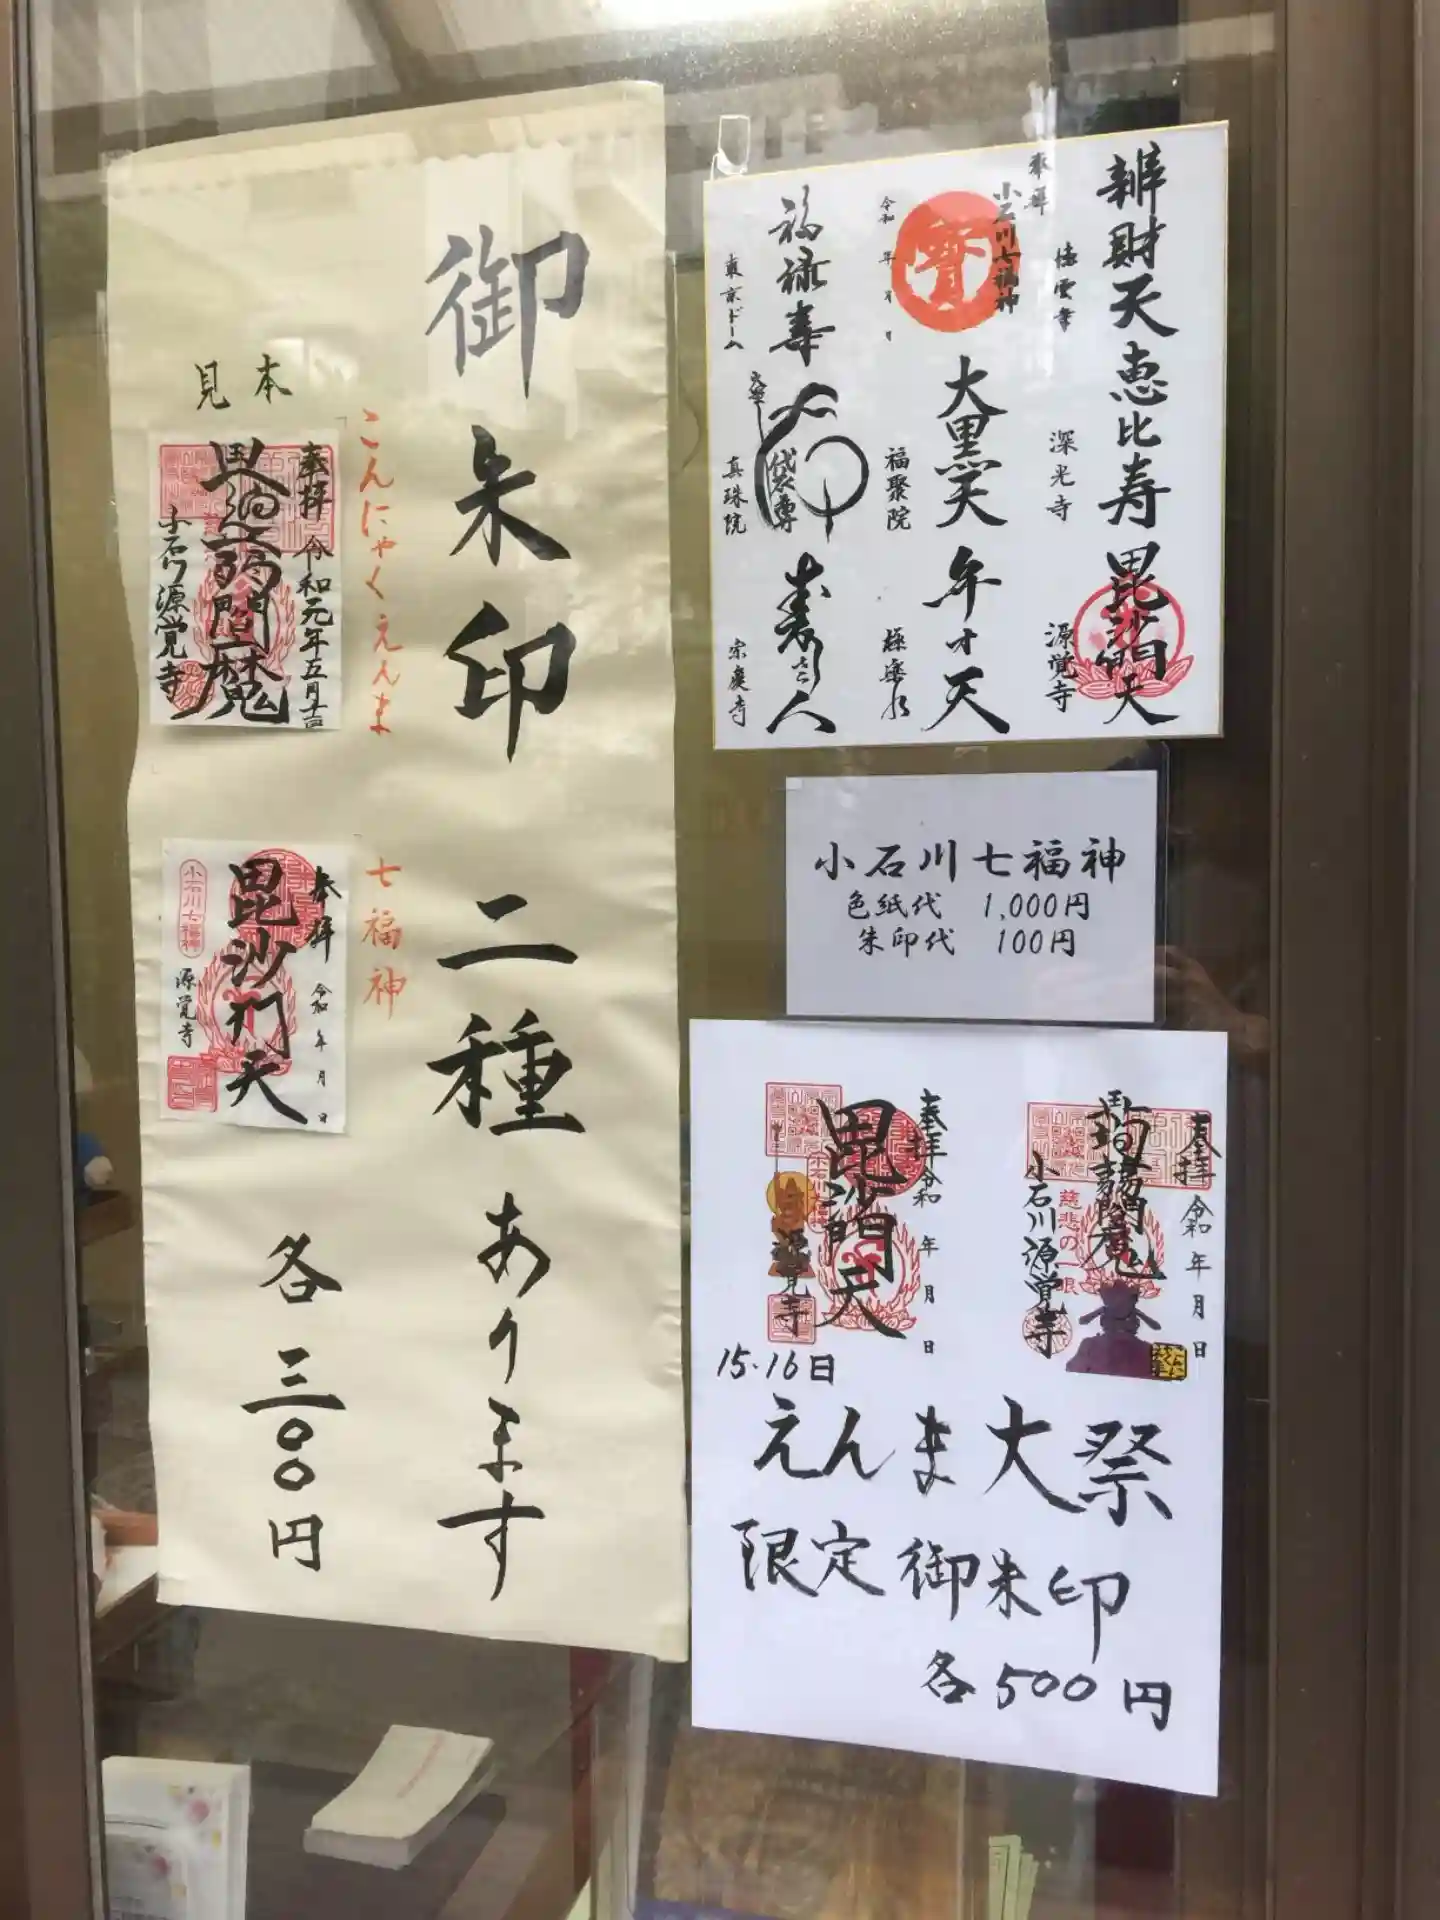 御朱印 二種 あります
各 三〇〇円
見本
こんにゃくえんま
奉拝 令和元年五月
閻魔
小石川源覚寺
七福神
奉拝 令和 年 月 日
毘沙門天
小石川七福神
源覚寺
辨財天 恵比寿 毘沙門天
徳雲寺 深光寺 源覚寺
奉拝
小石川七福神
寳
大黒天 弁才天
令和 年 月 日
福聚院 極楽水
福禄寿 布袋尊 寿老人
東京ドーム 真珠院 宗慶寺
小石川七福神
色紙代 1,000円
朱印代 100円
奉拝 令和 年 月 日
閻魔
慈悲の一眼
小石川源覚寺
奉拝 令和 年 月 日
毘沙門天
源覚寺
15・16日
えんま大祭
限定御朱印
各500円